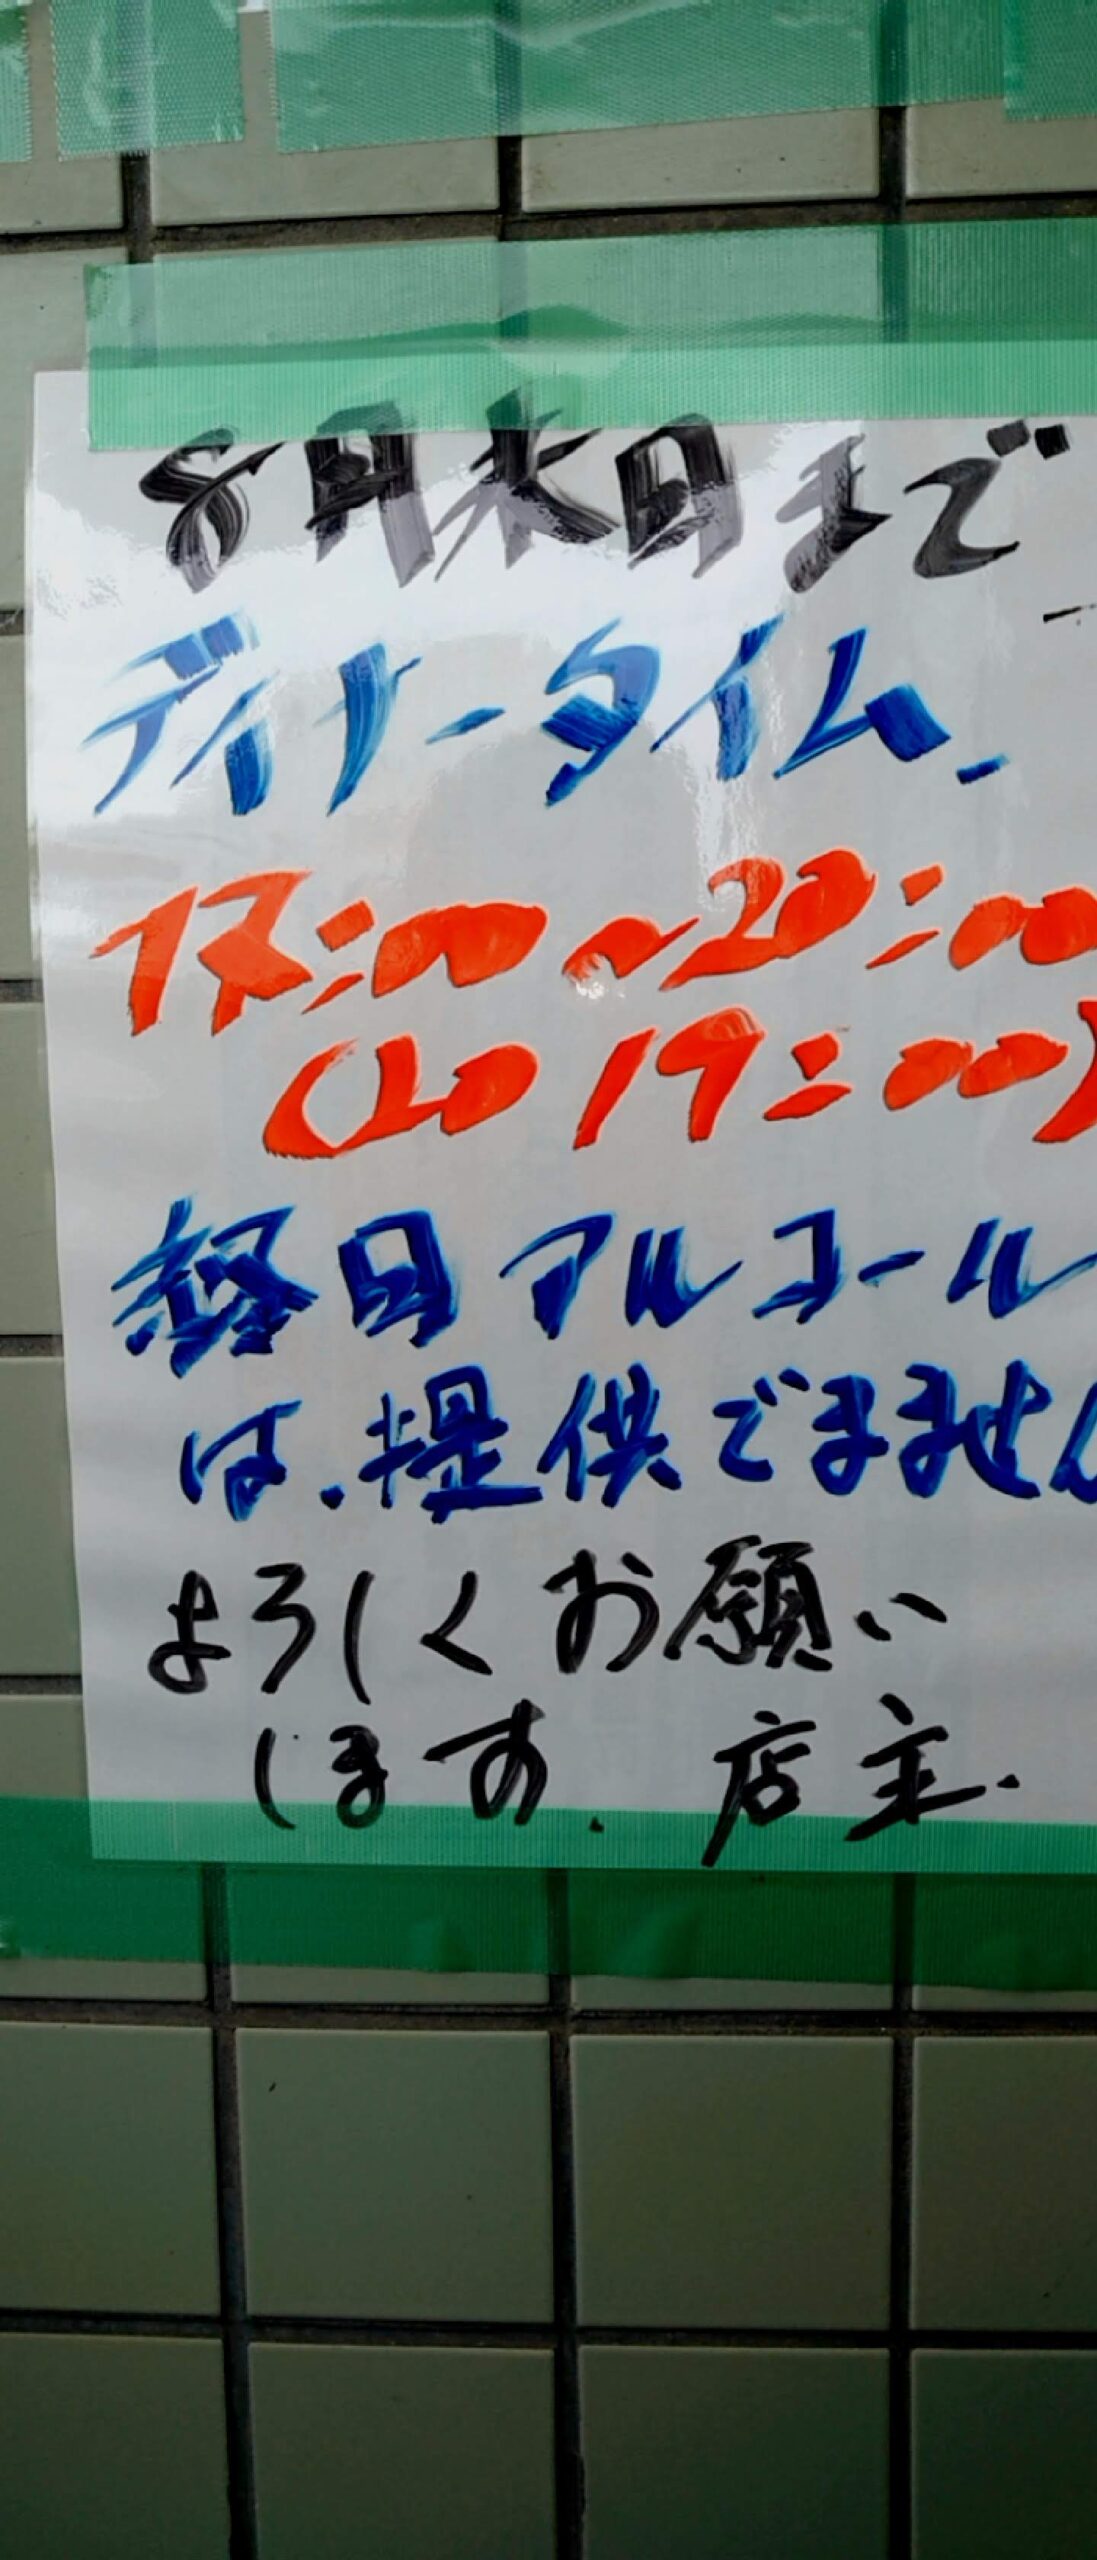 8月末日まで
ディナータイム.
17:00~20:00
(LO 19:00)
終日アルコール
は.提供できません
よろしくお願い
します. 店主.